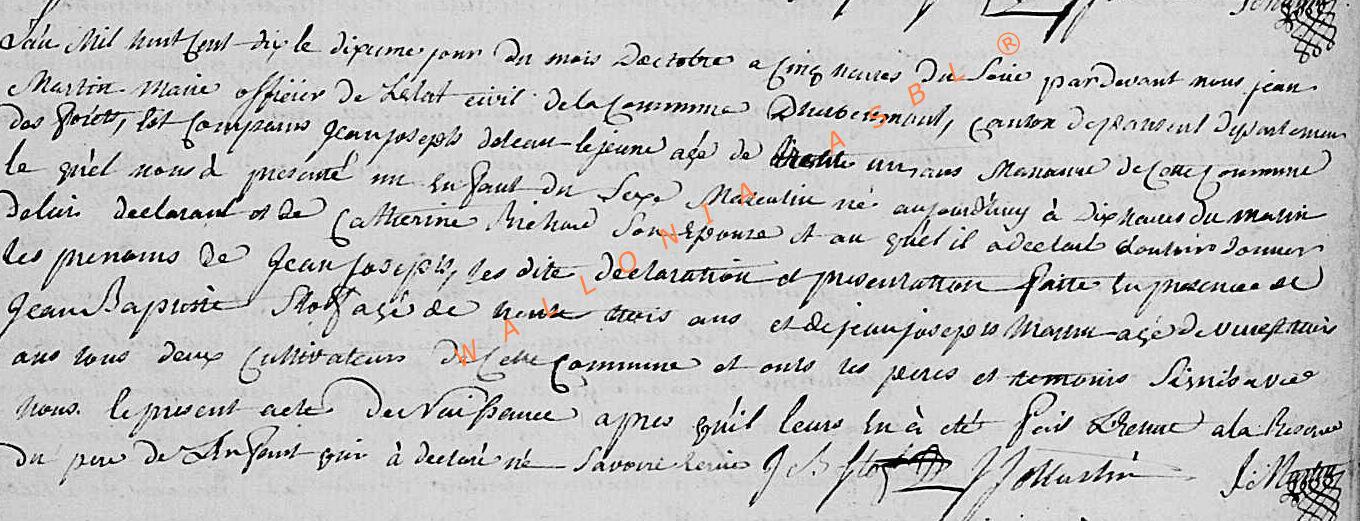 L'an Mil huit Cent dix le dixieme jour du mois Doctobre a Cinq heures du Soir pardevant nous jean
Martin Maire officier de Letat civil de la Commune Dhubermont, Canton departement
des forêts, Est Comparus jean joseph le jeune agé de un ans de Cette Commune
le quel nous à presenté un Enfant du Sexe Masculin né aujourdhuy à Dix heures du matin
de luis declarant et de Catherine Richard Son Epouse et au quel il a declaré Vouloir donner
les prenoms de Jean joseph, les dite declaration et presentation faitte En presence de
Jean Baptiste agé de trente trois ans et de jean joseph Martin agé de vingt trois
ans tous deux Cultivateurs de Cette Commune et onts les peres et temoins Signés avec
nous le present acte de Naissance apres qu'il leurs En à eté fait Lecture a la Reserve
du pere de L'Enfant qui à declaré ne Savoire Ecrire J B JJ Martin J: Martin
WALLONIA ASBL ®